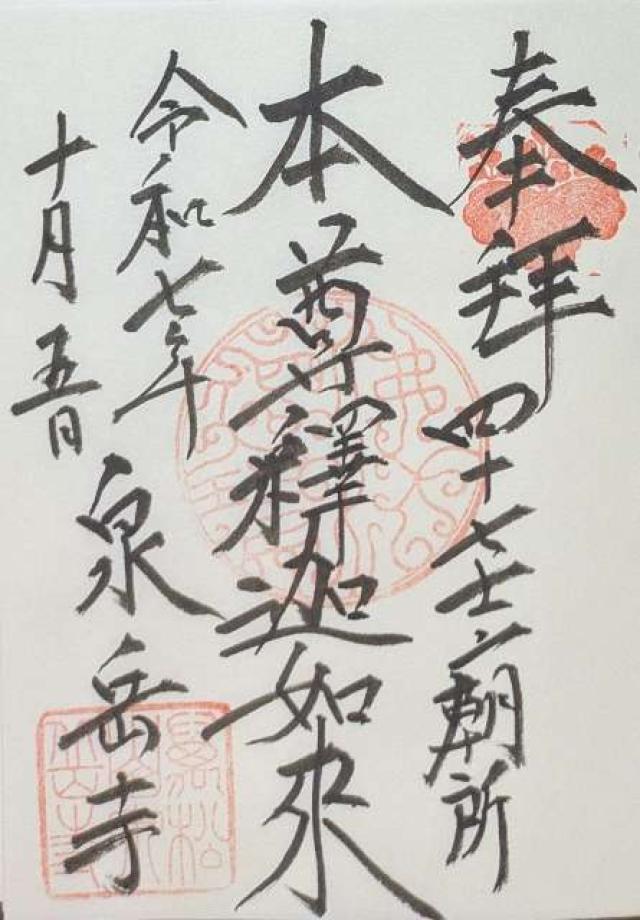 奉拝 四十七士廟所
本尊釋迦如来
令和七年
十月五日
泉岳寺